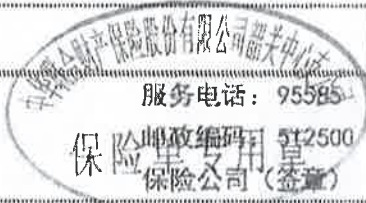 中华联合财产保险股份有限公司韶关中心支公司
服务电话: 95585
邮政编码: 512500
保险单专用章
保险公司(签章)